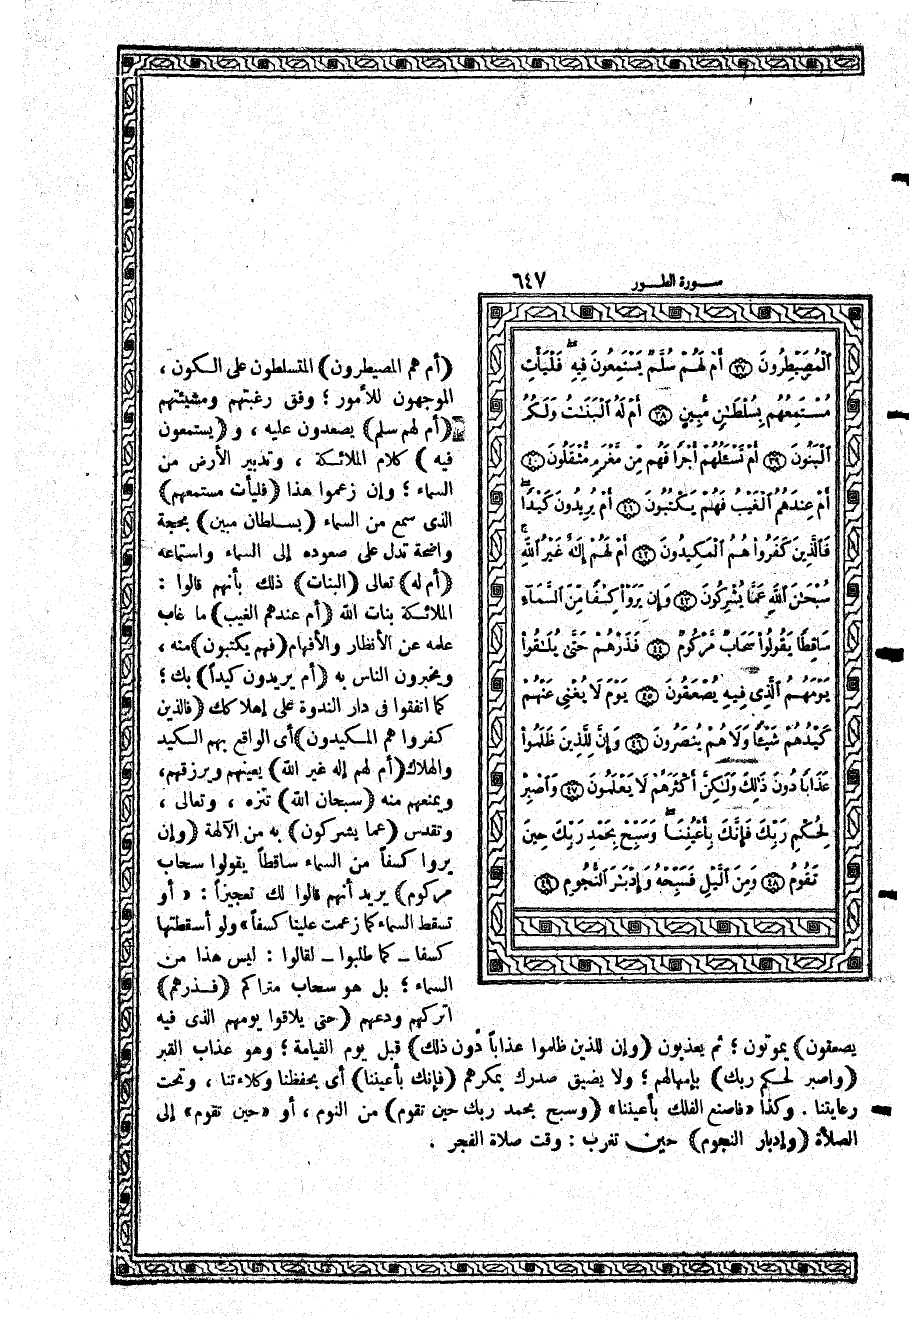 سورة الطور ٦٤٧
ٱلْمُصَۣيْطِرُونَ ﴿٣٧﴾ أَمْ لَهُمْ سُلَّمٌ يَسْتَمِعُونَ فِيهِ ۖ فَلْيَأْتِ
مُسْتَمِعُهُم بِسُلْطَٰنٍ مُّبِينٍ ﴿٣٨﴾ أَمْ لَهُ ٱلْبَنَٰتُ وَلَكُمُ
ٱلْبَنُونَ ﴿٣٩﴾ أَمْ تَسْـَٔلُهُمْ أَجْرًا فَهُم مِّن مَّغْرَمٍ مُّثْقَلُونَ ﴿٤٠﴾
أَمْ عِندَهُمُ ٱلْغَيْبُ فَهُمْ يَكْتُبُونَ ﴿٤١﴾ أَمْ يُرِيدُونَ كَيْدًا ۖ
فَٱلَّذِينَ كَفَرُوا۟ هُمُ ٱلْمَكِيدُونَ ﴿٤٢﴾ أَمْ لَهُمْ إِلَٰهٌ غَيْرُ ٱللَّهِ ۚ
سُبْحَٰنَ ٱللَّهِ عَمَّا يُشْرِكُونَ ﴿٤٣﴾ وَإِن يَرَوْا۟ كِسْفًا مِّنَ ٱلسَّمَآءِ
سَاقِطًا يَقُولُوا۟ سَحَابٌ مَّرْكُومٌ ﴿٤٤﴾ فَذَرْهُمْ حَتَّىٰ يُلَٰقُوا۟
يَوْمَهُمُ ٱلَّذِى فِيهِ يُصْعَقُونَ ﴿٤٥﴾ يَوْمَ لَا يُغْنِى عَنْهُمْ
كَيْدُهُمْ شَيْـًٔا وَلَا هُمْ يُنصَرُونَ ﴿٤٦﴾ وَإِنَّ لِلَّذِينَ ظَلَمُوا۟
عَذَابًا دُونَ ذَٰلِكَ وَلَٰكِنَّ أَكْثَرَهُمْ لَا يَعْلَمُونَ ﴿٤٧﴾ وَٱصْبِرْ
لِحُكْمِ رَبِّكَ فَإِنَّكَ بِأَعْيُنِنَا ۖ وَسَبِّحْ بِحَمْدِ رَبِّكَ حِينَ
تَقُومُ ﴿٤٨﴾ وَمِنَ ٱلَّيْلِ فَسَبِّحْهُ وَإِدْبَٰرَ ٱلنُّجُومِ ﴿٤٩﴾
(أم هم المصيطرون) المتسلطون على الكون ،
الموجهون للأمور ؛ وفق رغبتهم ومشيئتهم
(أم لهم سلم) يصعدون عليه ، و (يستمعون
فيه) كلام الملائكة ، وتدبير الأرض من
السماء ؛ وإن زعموا هذا (فليأت مستمعهم)
الذى سمع من السماء (بسلطان مبين) بحجة
واضحة تدل على صعوده إلى السماء واستماعه
(أم له) تعالى (البنات) ذلك بأنهم قالوا :
الملائكة بنات الله (أم عندهم الغيب) ما غاب
علمه عن الأنظار والأفهام (فهم يكتبون) منه ،
ويخبرون الناس به (أم يريدون كيداً) بك ؛
كما اتفقوا فى دار الندوة على إهلاكك (فالذين
كفروا هم المكيدون) أى الواقع بهم الكيد
والهلاك (أم لهم إله غير الله) يعينهم ويرزقهم ،
ويمنعهم منه (سبحان الله) تنزه ، وتعالى ،
وتقدس (عما يشركون) به من الآلهة (وإن
يروا كسفاً من السماء ساقطاً يقولوا سحاب
مركوم) يريد أنهم قالوا لك تعجيزاً : « أو
تسقط السماء كما زعمت علينا كسفاً» ولو أسقطتها
كسفا ــ كما طلبوا ــ لقالوا : ليس هذا من
السماء ؛ بل هو سحاب متراكم (فذرهم)
اتركهم ودعهم (حتى يلاقوا يومهم الذى فيه
يصعقون) يموتون ؛ ثم يعذبون (وإن للذين ظلموا عذاباً دون ذلك) قبل يوم القيامة ؛ وهو عذاب القبر
(واصبر لحكم ربك) بإمهالهم ؛ ولا يضيق صدرك بمكرهم (فإنك بأعيننا) أى بحفظنا وكلاءتنا ، وتحت
رعايتنا . وكذا «فاصنع الفلك بأعيننا» (وسبح بحمد ربك حين تقوم) من النوم ، أو «حين تقوم» إلى
الصلاة (وإدبار النجوم) حين تغرب : وقت صلاة الفجر .